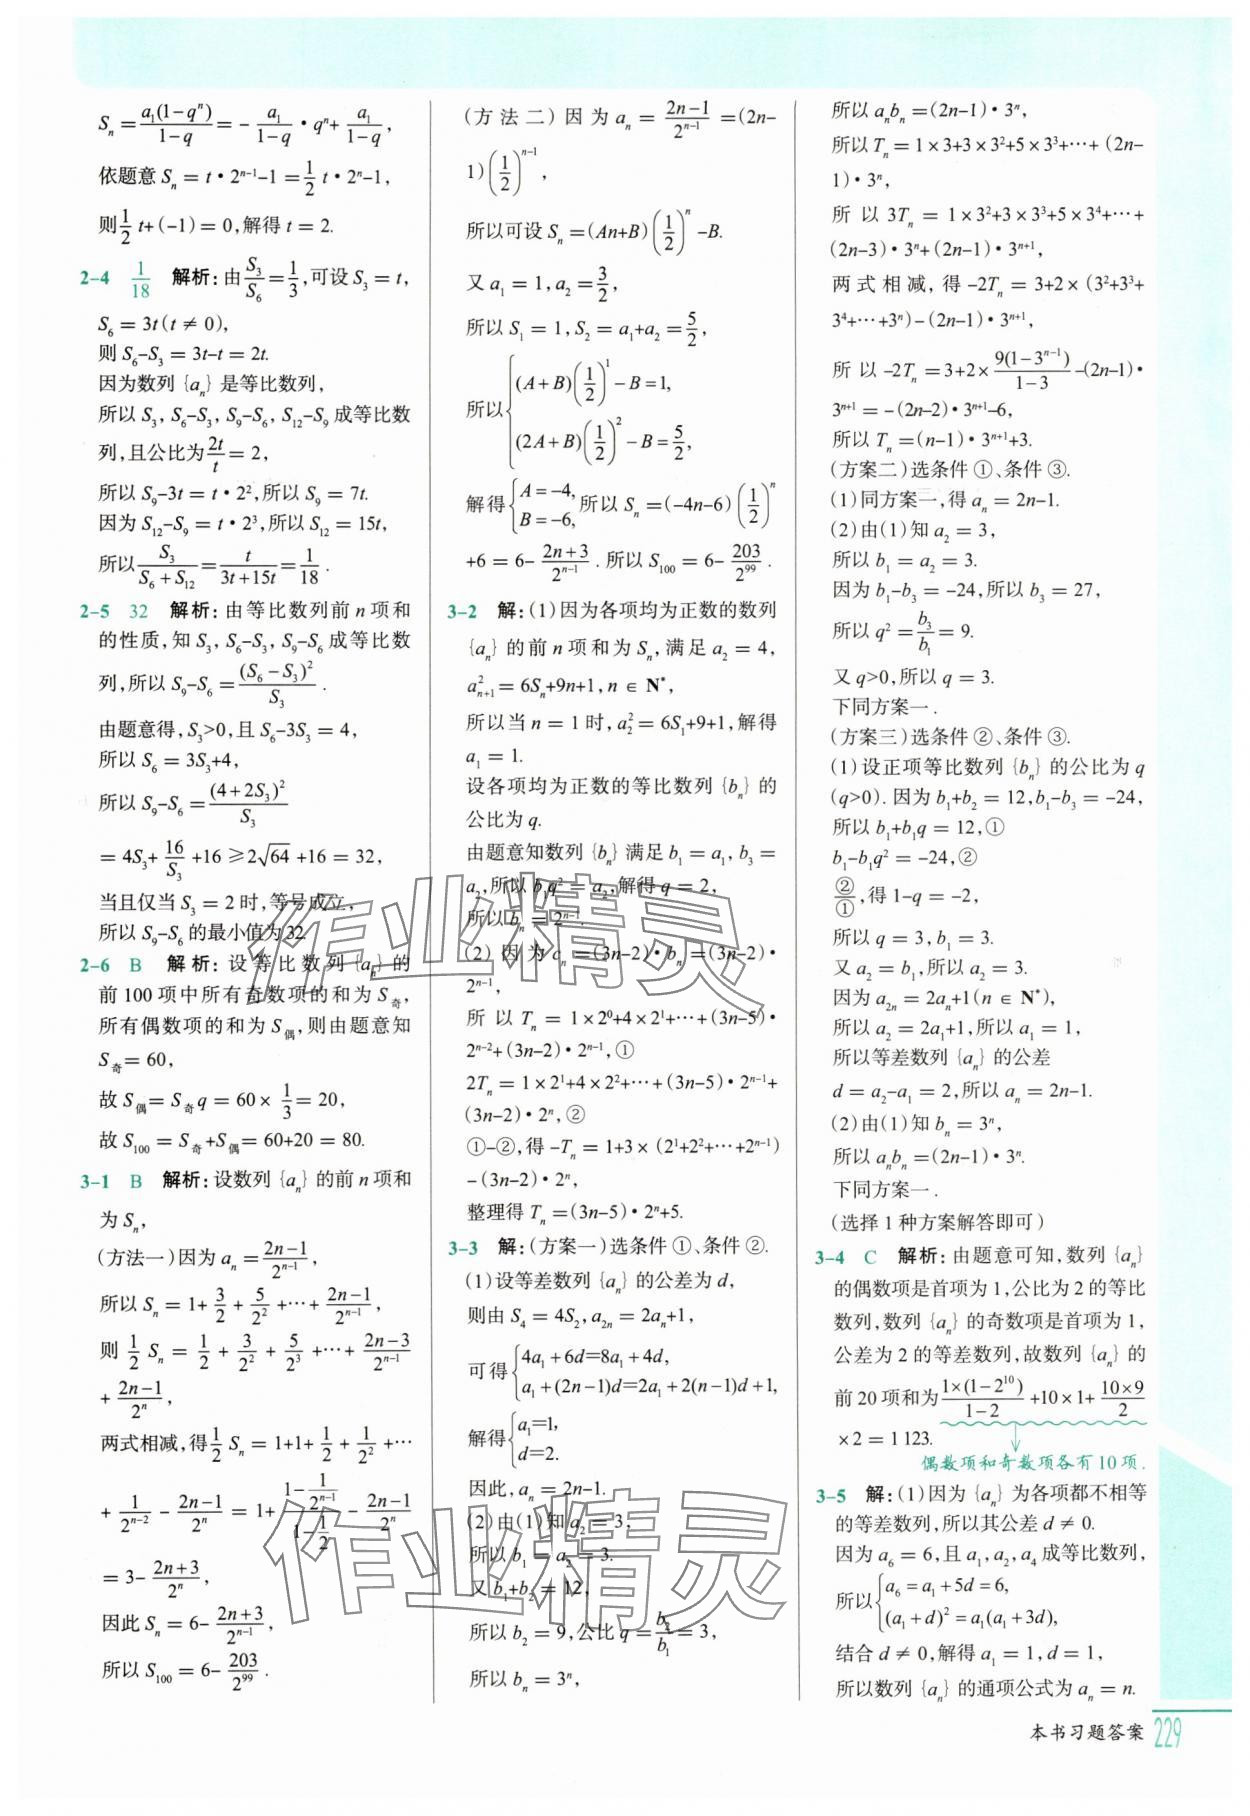 Sₙ = a₁(1-qⁿ)/(1-q) = - a₁/(1-q) · qⁿ + a₁/(1-q),
依题意 Sₙ = t·2ⁿ⁻¹-1 = 1/2 t·2ⁿ-1,
则 1/2 t+(-1) = 0,解得 t = 2.
2-4 1/18 解析:由 S₃/S₆ = 1/3,可设 S₃ = t,
S₆ = 3t(t ≠ 0),
则 S₆-S₃ = 3t-t = 2t.
因为数列{aₙ}是等比数列,
所以 S₃, S₆-S₃, S₉-S₆, S₁₂-S₉ 成等比数
列,且公比为 2t/t = 2,
所以 S₉-3t = t·2²,所以 S₉ = 7t.
因为 S₁₂-S₉ = t·2³,所以 S₁₂ = 15t,
所以 S₃/(S₆+S₁₂) = t/(3t+15t) = 1/18.
2-5 32 解析:由等比数列前 n 项和
的性质,知 S₃, S₆-S₃, S₉-S₆ 成等比数
列,所以 S₉-S₆ = (S₆-S₃)²/S₃.
由题意得, S₃>0,且 S₆-3S₃ = 4,
所以 S₆ = 3S₃+4,
所以 S₉-S₆ = (4+2S₃)²/S₃
= 4S₃+ 16/S₃ +16 ≥ 2√64 +16 = 32,
当且仅当 S₃ = 2 时,等号成立,
所以 S₉-S₆ 的最小值为 32.
2-6 B 解析:设等比数列{aₙ}的
前 100 项中所有奇数项的和为 S奇,
所有偶数项的和为 S偶,则由题意知
S奇 = 60,
故 S偶 = S奇q = 60× 1/3 = 20,
故 S₁₀₀ = S奇+S偶 = 60+20 = 80.
3-1 B 解析:设数列{aₙ}的前 n 项和
为 Sₙ,
(方法一)因为 aₙ = (2n-1)/2ⁿ⁻¹,
所以 Sₙ = 1+ 3/2 + 5/2² +…+ (2n-1)/2ⁿ⁻¹,
则 1/2 Sₙ = 1/2 + 3/2² + 5/2³ +…+ (2n-3)/2ⁿ⁻¹
+ (2n-1)/2ⁿ,
两式相减,得 1/2 Sₙ = 1+1+ 1/2 + 1/2² +…
+ 1/2ⁿ⁻² - (2n-1)/2ⁿ = 1+ (1- 1/2ⁿ⁻¹)/(1- 1/2) - (2n-1)/2ⁿ
= 3- (2n+3)/2ⁿ,
因此 Sₙ = 6- (2n+3)/2ⁿ⁻¹,
所以 S₁₀₀ = 6- 203/2⁹⁹.
(方法二)因为 aₙ = (2n-1)/2ⁿ⁻¹ = (2n-
1)(1/2)ⁿ⁻¹,
所以可设 Sₙ = (An+B)(1/2)ⁿ-B.
又 a₁ = 1, a₂ = 3/2,
所以 S₁ = 1, S₂ = a₁+a₂ = 5/2,
所以{(A+B)(1/2)¹-B=1,
(2A+B)(1/2)²-B=5/2,
解得{A=-4, B=-6,所以 Sₙ = (-4n-6)(1/2)ⁿ
+6 = 6- (2n+3)/2ⁿ⁻¹.所以 S₁₀₀ = 6- 203/2⁹⁹.
3-2 解:(1)因为各项均为正数的数列
{aₙ}的前 n 项和为 Sₙ,满足 a₂ = 4,
a²ₙ₊₁ = 6Sₙ+9n+1, n ∈ N*,
所以当 n = 1 时, a₂² = 6S₁+9+1,解得
a₁ = 1.
设各项均为正数的等比数列{bₙ}的
公比为 q.
由题意知数列{bₙ}满足 b₁ = a₁, b₃ =
a₂,所以 b₁q² = a₂,解得 q = 2,
所以 bₙ = 2ⁿ⁻¹.
(2)因为 cₙ = (3n-2)·bₙ = (3n-2)·
2ⁿ⁻¹,
所以 Tₙ = 1×2⁰+4×2¹+…+(3n-5)·
2ⁿ⁻²+(3n-2)·2ⁿ⁻¹,①
2Tₙ = 1×2¹+4×2²+…+(3n-5)·2ⁿ⁻¹+
(3n-2)·2ⁿ,②
①-②,得 -Tₙ = 1+3×(2¹+2²+…+2ⁿ⁻¹)
-(3n-2)·2ⁿ,
整理得 Tₙ = (3n-5)·2ⁿ+5.
3-3 解:(方案一)选条件①、条件②.
(1)设等差数列{aₙ}的公差为 d,
则由 S₄ = 4S₂, a₂ₙ = 2aₙ+1,
可得{4a₁+6d=8a₁+4d,
a₁+(2n-1)d=2a₁+2(n-1)d+1,
解得{a₁=1,
d=2.
因此, aₙ = 2n-1.
(2)由(1)知 a₂ = 3,
所以 b₁ = a₂ = 3.
又 b₁+b₂ = 12,
所以 b₂ = 9,公比 q = b₂/b₁ = 3,
所以 bₙ = 3ⁿ,
所以 aₙbₙ = (2n-1)·3ⁿ,
所以 Tₙ = 1×3+3×3²+5×3³+…+(2n-
1)·3ⁿ,
所以 3Tₙ = 1×3²+3×3³+5×3⁴+…+
(2n-3)·3ⁿ+(2n-1)·3ⁿ⁺¹,
两式相减,得 -2Tₙ = 3+2×(3²+3³+
3⁴+…+3ⁿ)-(2n-1)·3ⁿ⁺¹,
所以 -2Tₙ = 3+2× 9(1-3ⁿ⁻¹)/(1-3) -(2n-1)·
3ⁿ⁺¹ = -(2n-2)·3ⁿ⁺¹-6,
所以 Tₙ = (n-1)·3ⁿ⁺¹+3.
(方案二)选条件①、条件③.
(1)同方案一,得 aₙ = 2n-1.
(2)由(1)知 a₂ = 3,
所以 b₁ = a₂ = 3.
因为 b₁-b₃ = -24,所以 b₃ = 27,
所以 q² = b₃/b₁ = 9.
又 q>0,所以 q = 3.
下同方案一.
(方案三)选条件②、条件③.
(1)设正项等比数列{bₙ}的公比为 q
(q>0).因为 b₁+b₂ = 12, b₁-b₃ = -24,
所以 b₁+b₁q = 12,①
b₁-b₁q² = -24,②
②/①,得 1-q = -2,
所以 q = 3, b₁ = 3.
又 a₂ = b₁,所以 a₂ = 3.
因为 a₂ₙ = 2aₙ+1(n ∈ N*),
所以 a₂ = 2a₁+1,所以 a₁ = 1,
所以等差数列{aₙ}的公差
d = a₂-a₁ = 2,所以 aₙ = 2n-1.
(2)由(1)知 bₙ = 3ⁿ,
所以 aₙbₙ = (2n-1)·3ⁿ.
下同方案一.
(选择 1 种方案解答即可)
3-4 C 解析:由题意可知,数列{aₙ}
的偶数项是首项为 1,公比为 2 的等比
数列,数列{aₙ}的奇数项是首项为 1,
公差为 2 的等差数列,故数列{aₙ}的
前 20 项和为 1×(1-2¹⁰)/(1-2) +10×1+ (10×9)/2
×2 = 1 123.
偶数项和奇数项各有10项.
3-5 解:(1)因为{aₙ}为各项都不相等
的等差数列,所以其公差 d ≠ 0.
因为 a₆ = 6,且 a₁, a₂, a₄ 成等比数列,
所以{a₆=a₁+5d=6,
(a₁+d)²=a₁(a₁+3d),
结合 d ≠ 0,解得 a₁ = 1, d = 1,
所以数列{aₙ}的通项公式为 aₙ = n.
本书习题答案 229
作业精灵
作业精灵